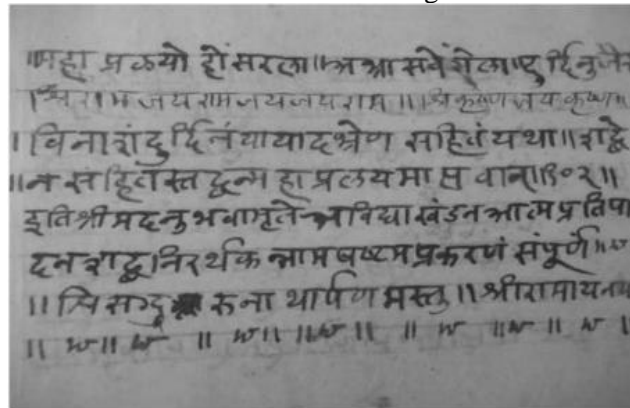 ॥महा प्रळयो हों सरला॥ दुर्दिनु जैसें
श्रीराम जयराम जयजयराम ॥ श्रीकृष्ण जयकृष्ण
। विनाशं दुर्दिनं यायादभ्रेण सहितं यथा॥ शब्दे
॥न सहितस्तद्वन्महाप्रळयमाप्तवान्॥१०२॥
इतिश्रीमदनुभवामृते अविद्याखंडन आत्मप्रतिपा
दन शब्दनिरर्थक नाम षष्टमप्रकरणं संपूर्णं ॥
॥ श्रिसद्गुरुनाथार्पण मस्तु ॥ श्रीरामायनम